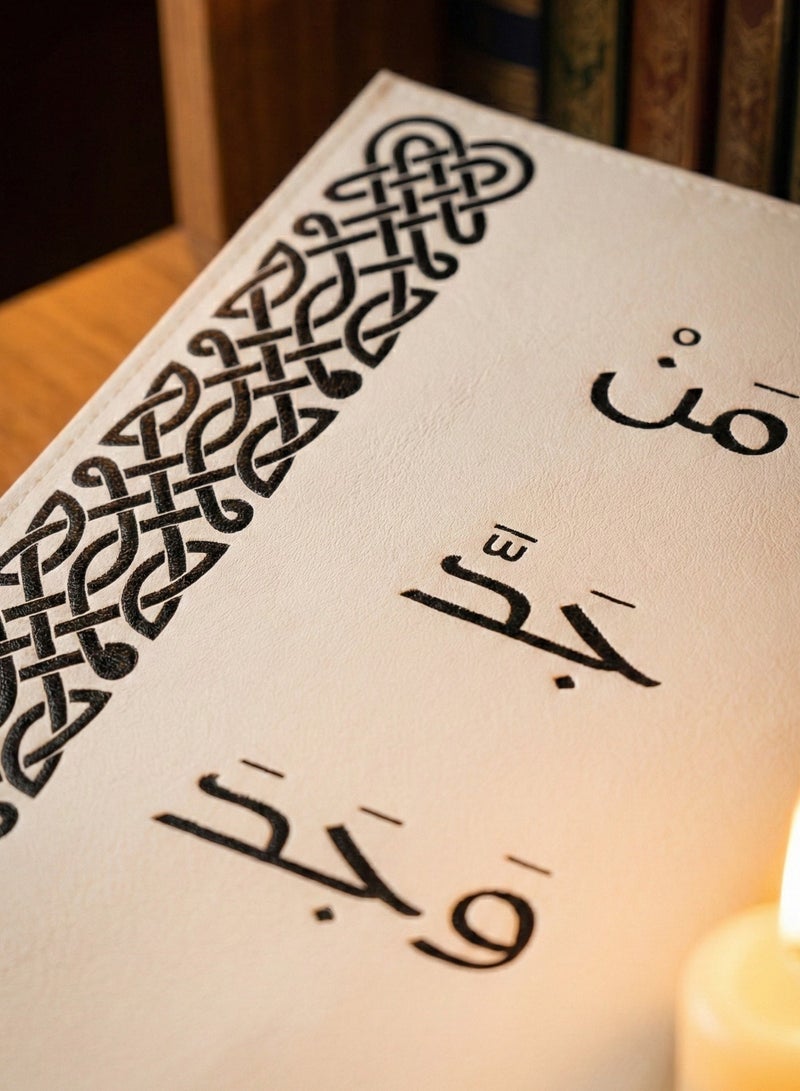 مَنْ
جَدَّ
وَجَدَ